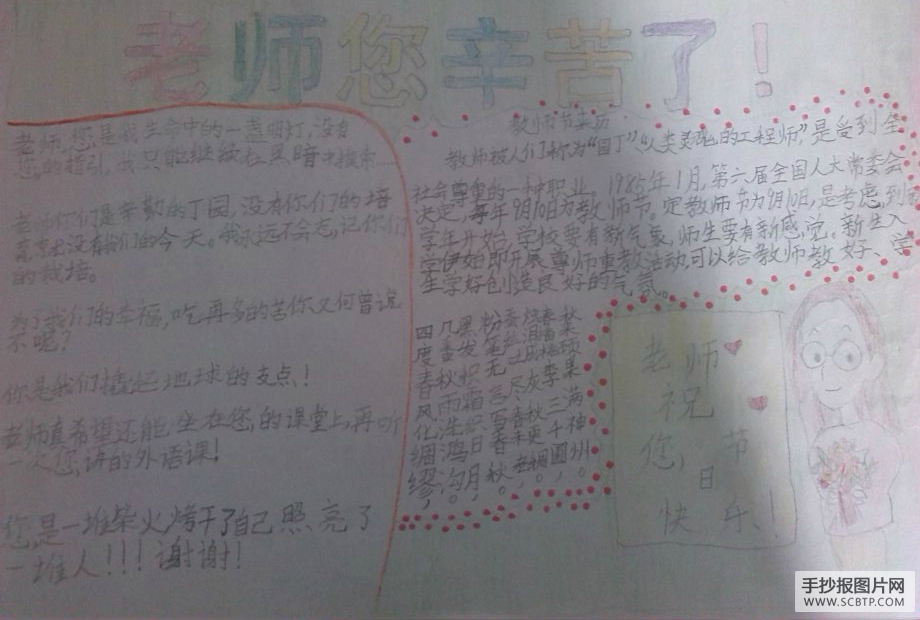 老师您辛苦了!
老师,您是我生命中的一盏明灯,没有
您的指引,我只能继续在黑暗中摸索……
老师你们是辛勤的丁园,没有你们的培
育就没有我们的今天。我永远不会忘记你们
的栽培。
为了我们的幸福,吃再多的苦你又何曾说
不呢?
你是我们撬起地球的支点!
老师真希望还能坐在您的课堂上,再听
一次您讲的外语课!
您是一堆柴火烤干了自己照亮了
一堆人!!!谢谢!
教师节来历
教师被人们称为"园丁"、"人类灵魂的工程师",是受到全
社会尊重的一种职业。1985年1月,第六届全国人大常委会
决定,每年9月10日为教师节。定教师节为9月10日,是考虑到
学年开始,学校要有新气象,师生要有新感觉。新生入
学伊始即开展尊师重教活动,可以给教师教好、学
生学好创造良好的气氛。
四度春风化绸缪,
几番秋雨洗鸿沟。
黑发积霜织日月,
粉笔无言写春秋。
蚕丝吐尽春未老,
烛泪成灰秋更稠。
春播桃李三千圃,
秋硕果满神州。
老师
祝
您节
日
快乐!
手抄报图片网
WWW.SCBTP.COM